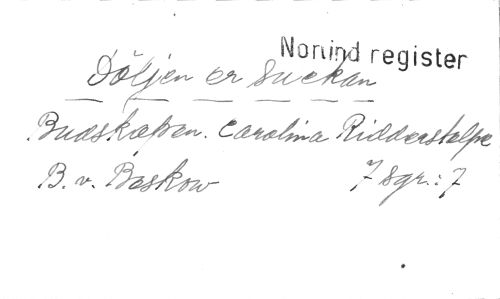 Nonind register
Döljen er suckan
Budskapen. Carolina Ridderstolpe
B. v. Beskow 7 sgr.: 7